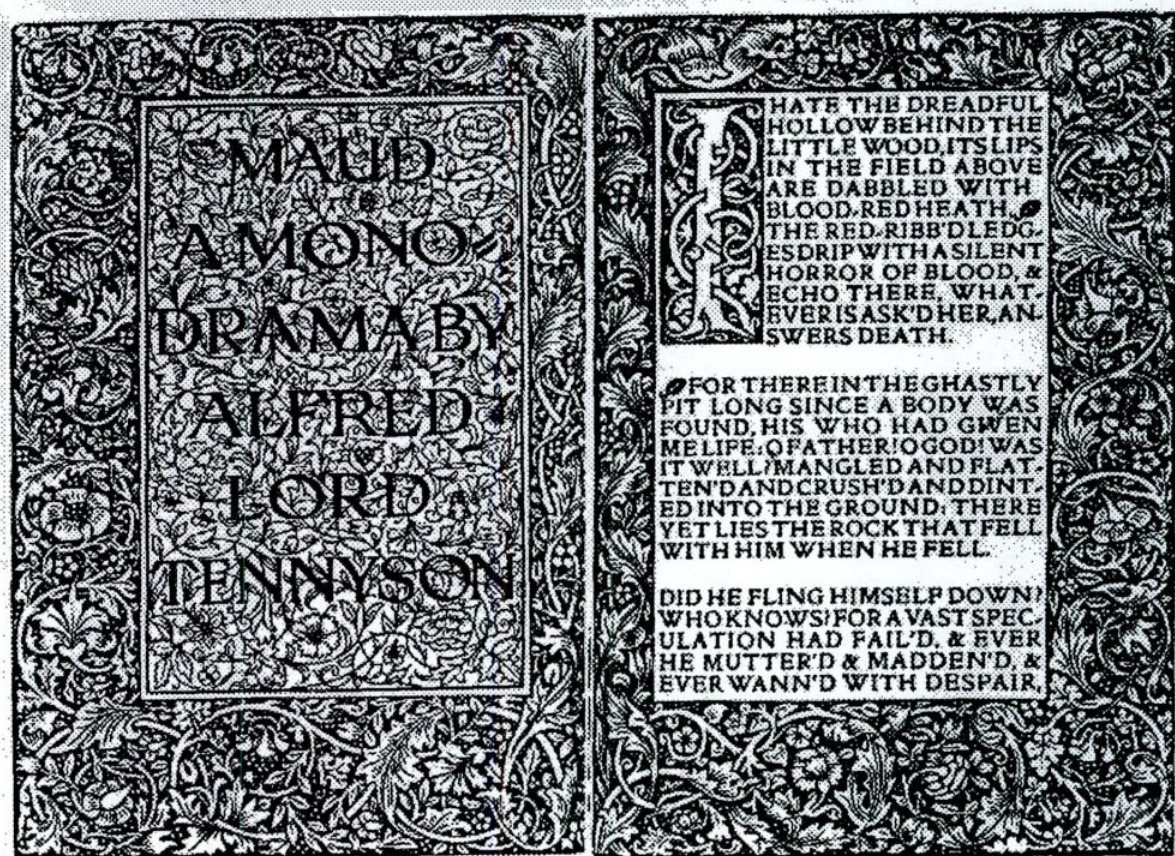 MAUD
A MONO-
DRAMA BY
ALFRED
LORD
TENNYSON
I HATE THE DREADFUL
HOLLOW BEHIND THE
LITTLE WOOD, ITS LIPS
IN THE FIELD ABOVE
ARE DABBLED WITH
BLOOD-RED HEATH,
THE RED-RIBB'D LEDG-
ES DRIP WITH A SILENT
HORROR OF BLOOD, &
ECHO THERE, WHAT-
EVER IS ASK'D HER, AN-
SWERS DEATH.
FOR THERE IN THE GHASTLY
PIT LONG SINCE A BODY WAS
FOUND, HIS WHO HAD GIVEN
ME LIFE: O FATHER! O GOD! WAS
IT WELL? MANGLED AND FLAT-
TEN'D AND CRUSH'D AND DINT-
ED INTO THE GROUND: THERE
YET LIES THE ROCK THAT FELL
WITH HIM WHEN HE FELL.
DID HE FLING HIMSELF DOWN?
WHO KNOWS? FOR A VAST SPEC-
ULATION HAD FAIL'D, & EVER
HE MUTTER'D & MADDEN'D, &
EVER WANN'D WITH DESPAIR,